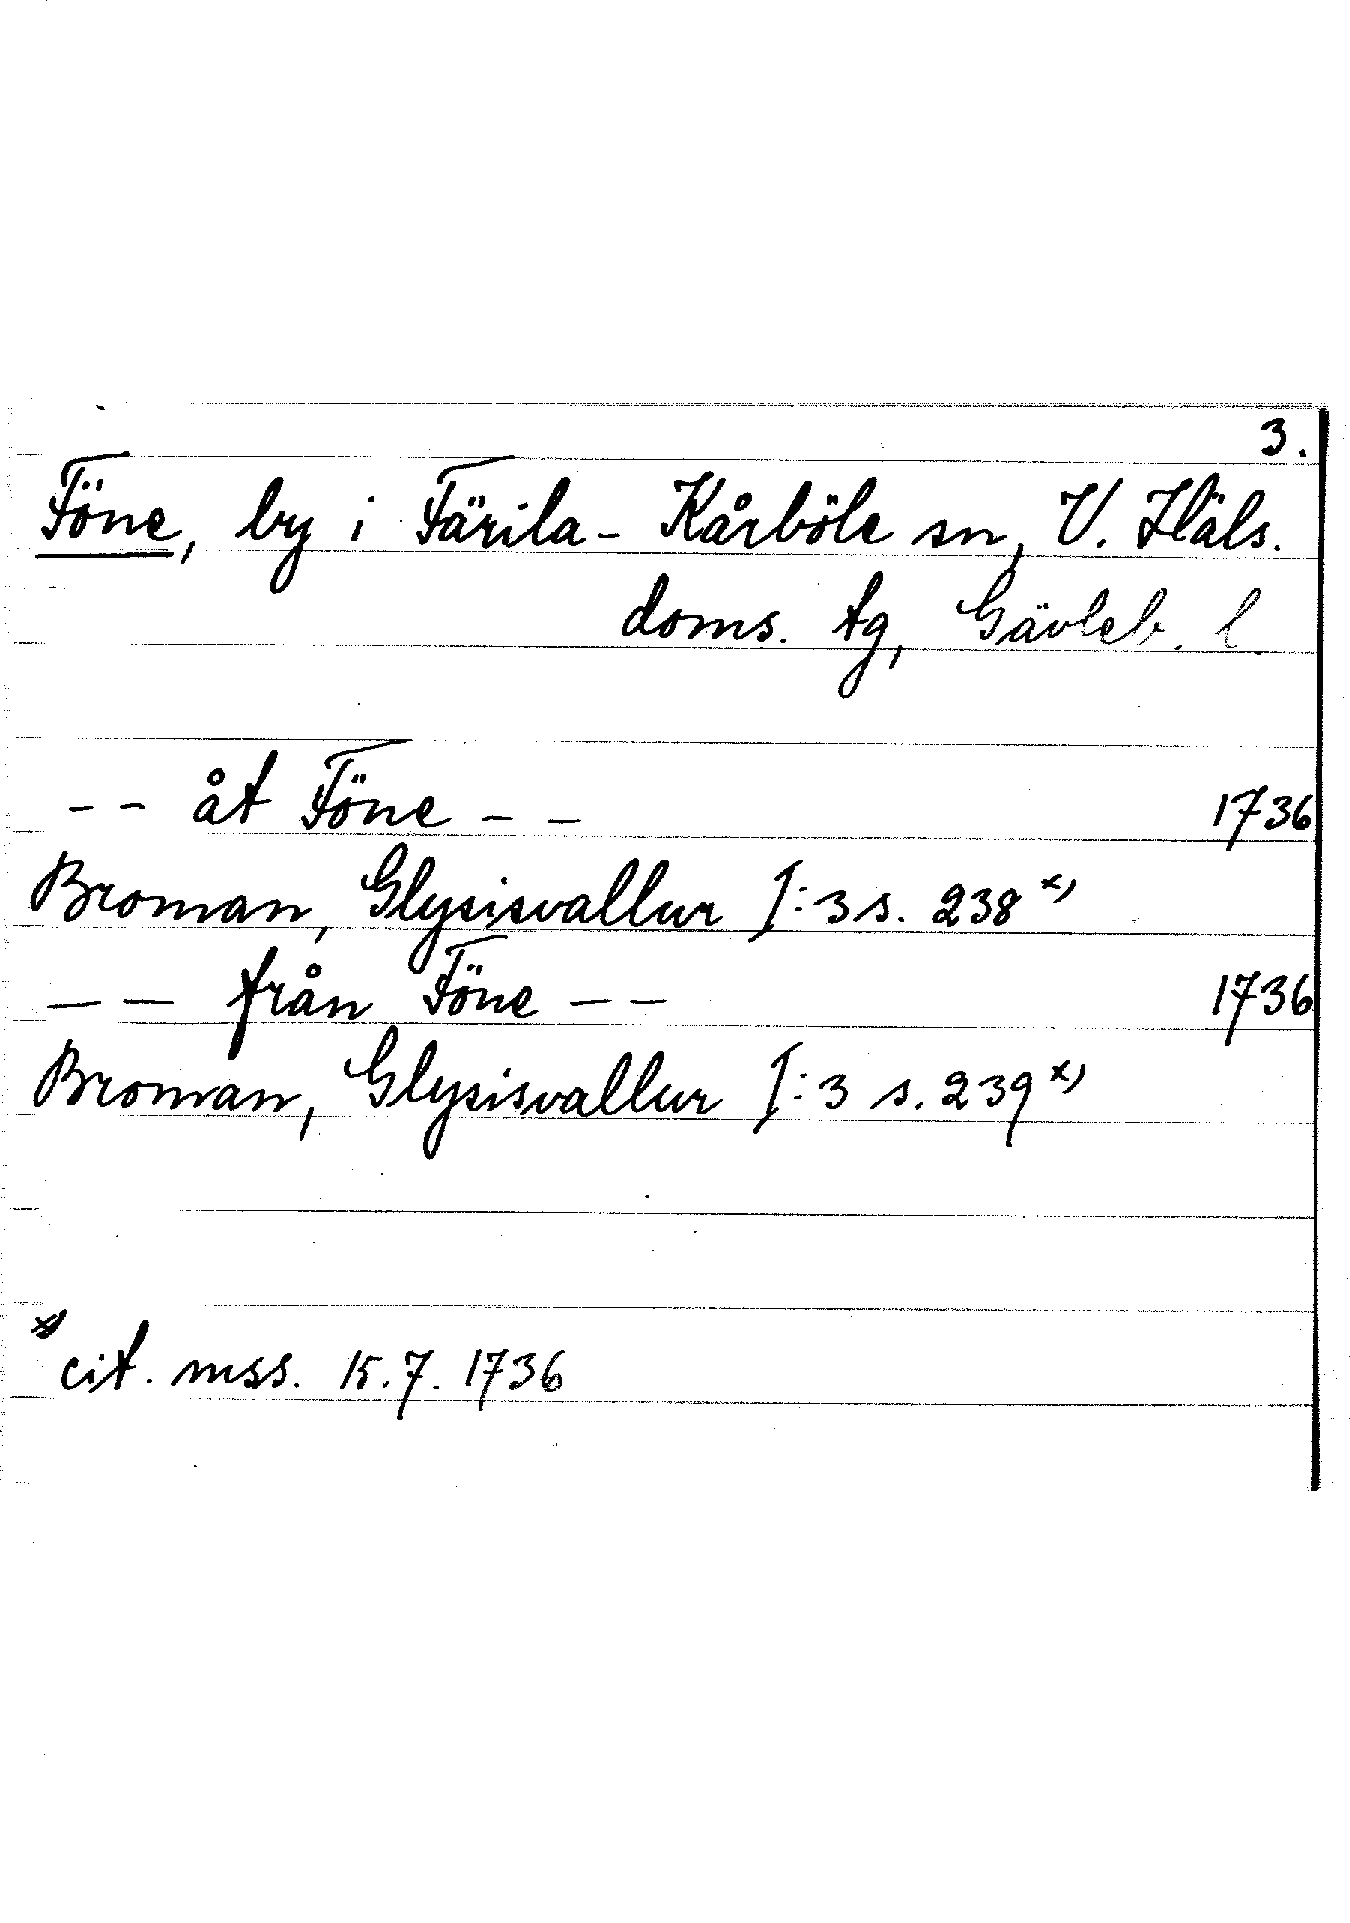 3.
Föne, by i Färila-Kårböle sn, V. Häls.
doms. tg, Gävleb. l.
-- åt Föne -- 1736
Broman, Glysisvallur I:3 s. 238 x)
-- från Föne -- 1736
Broman, Glysisvallur I:3 s. 239 x)
x) cit. mss. 15.7.1736